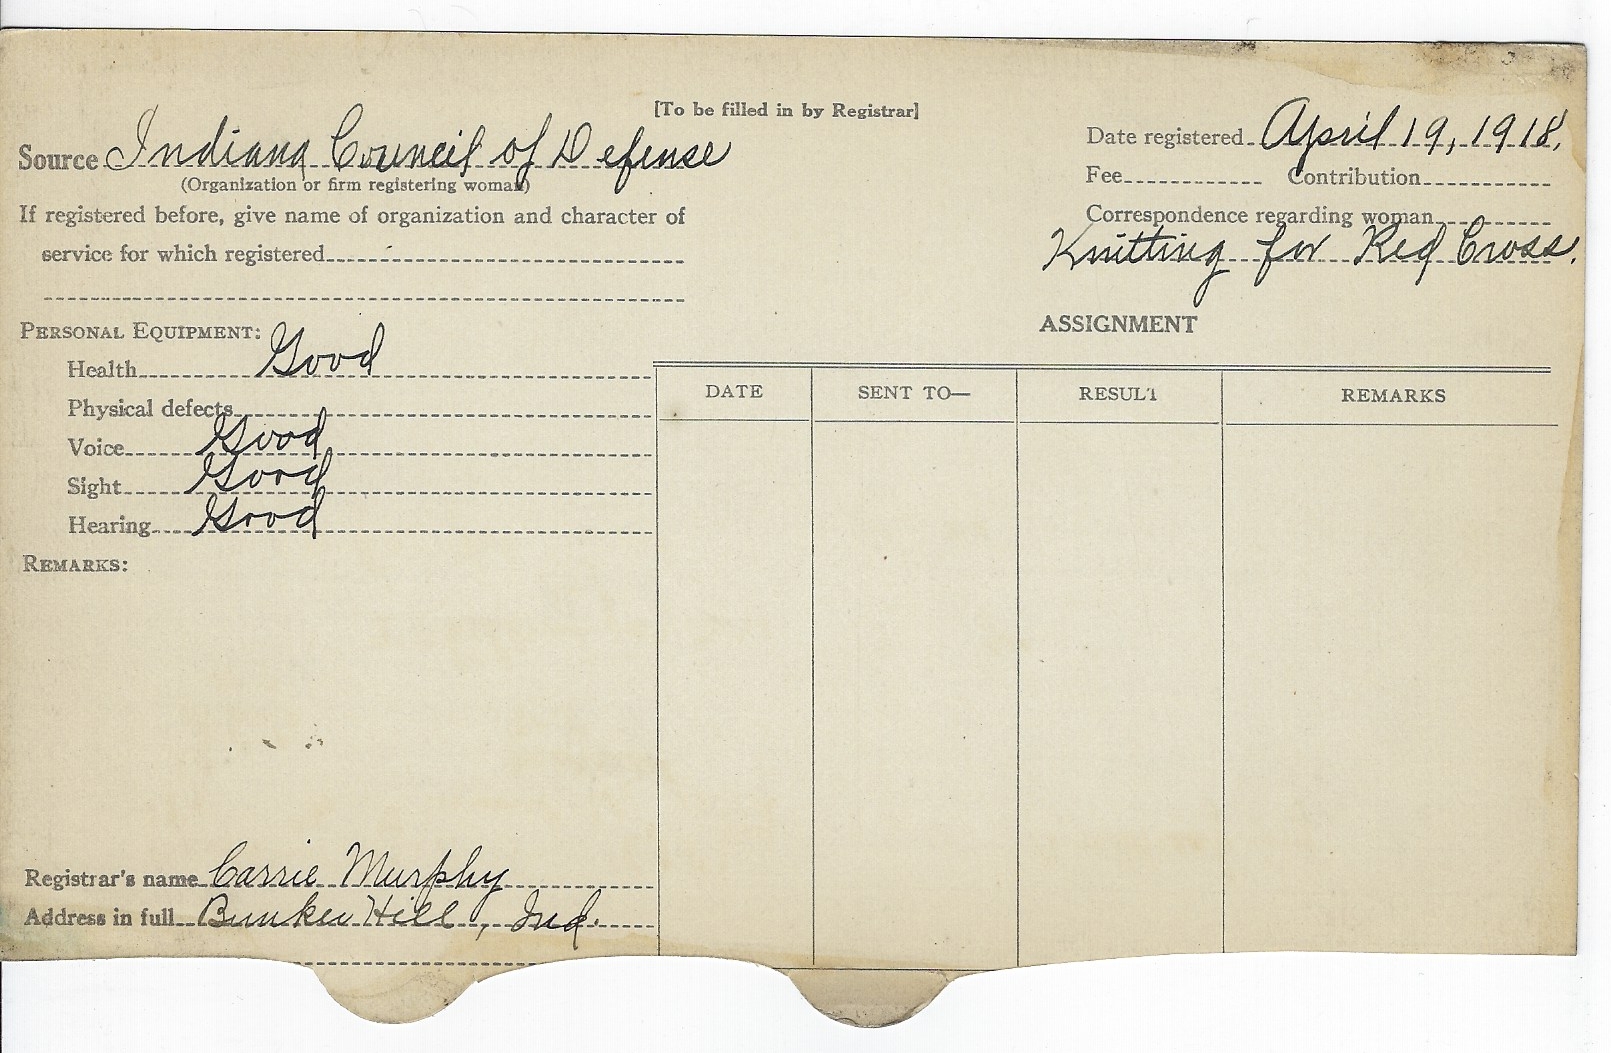 [To be filled in by Registrar]
Source Indiana Council of Defense
(Organization or firm registering woman)
If registered before, give name of organization and character of
service for which registered
Date registered April 19, 1918.
Fee Contribution
Correspondence regarding woman
Knitting for Red Cross.
PERSONAL EQUIPMENT:
Health Good
Physical defects
Voice Good
Sight Good
Hearing Good
REMARKS:
ASSIGNMENT
DATE SENT TO— RESULT REMARKS
Registrar's name Carrie Murphy
Address in full Bunker Hill, Ind.